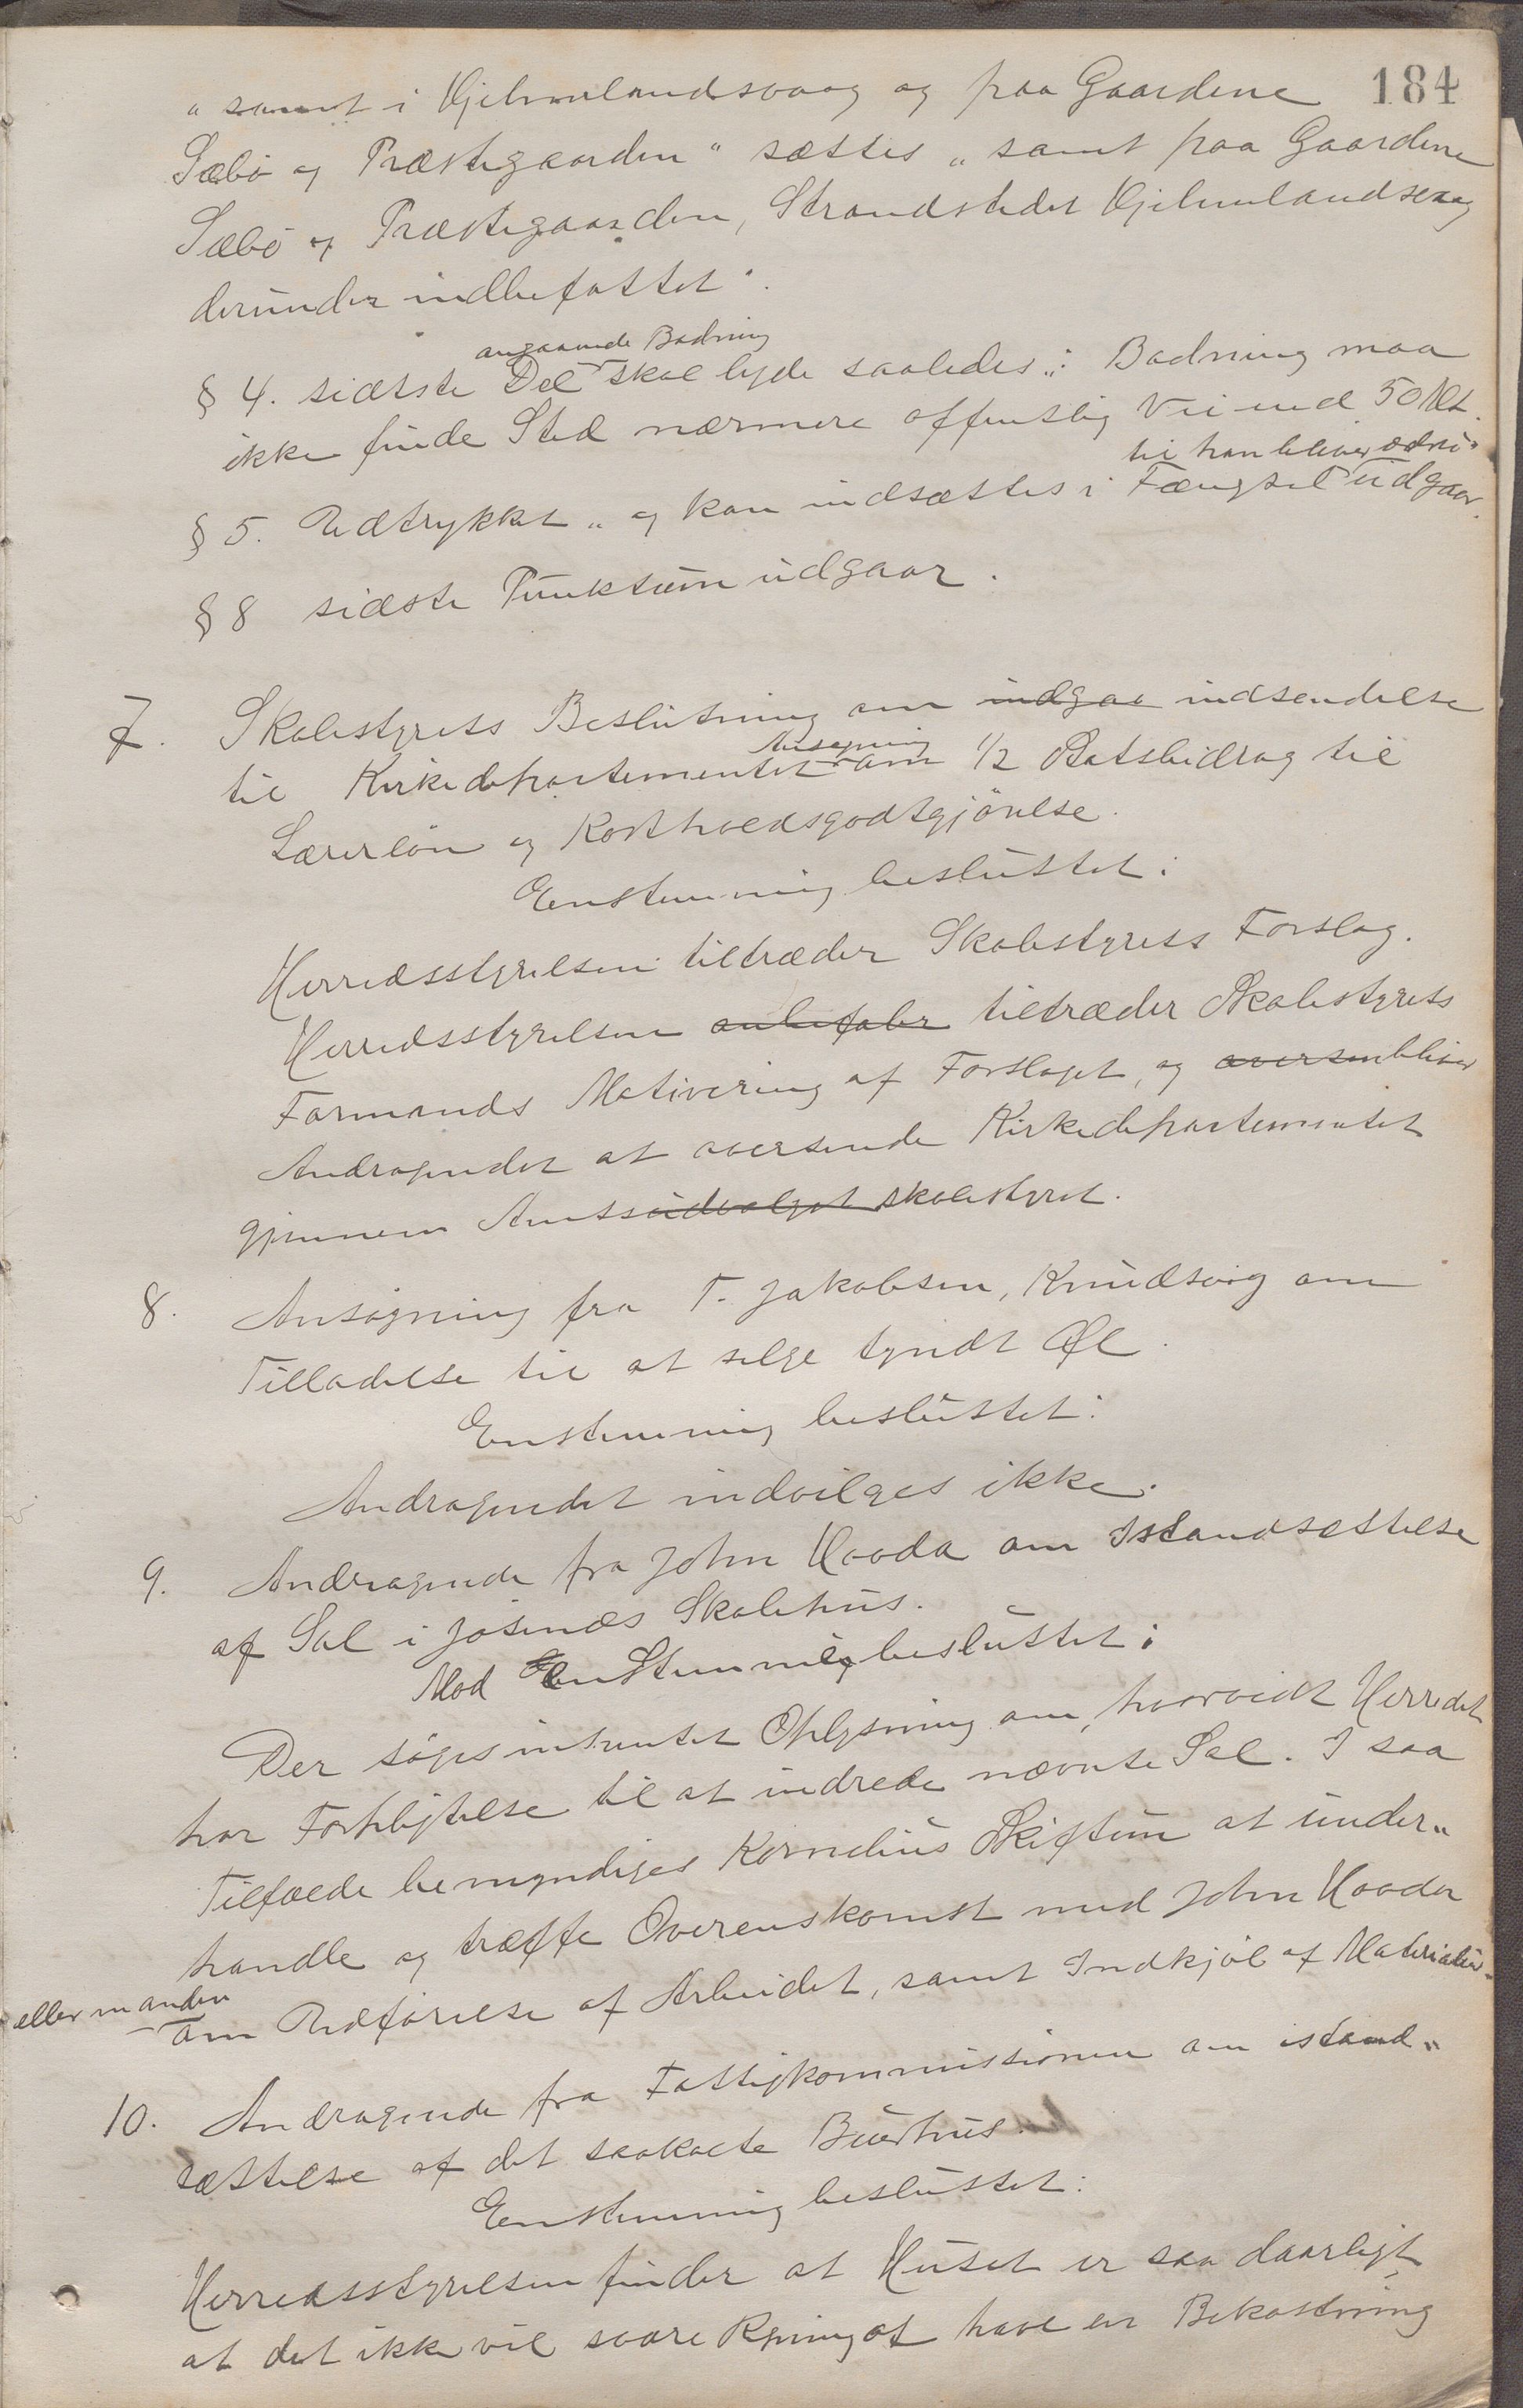 184
„samt i Hjelmelandsvaag og paa Gaardene
Sæbø og Præstegaarden" sættes „samt paa Gaardene
Sæbø og Præstegaarden, Strandstedet Hjelmelandsvaag
derunder indbefattet".
angaaende Badning
§ 4. sidste Del skal lyde saaledes: Badning maa
ikke finde Sted nærmere offentlig Vei end 50 Mt.
til han bliver ædru"
§ 5. Udtrykket „og kan indsættes i Fængsel udgaar.
§ 8 sidste Punktum udgaar.
7. Skolestyrets Beslutning om indgaa indsendelse
Ansøgning
til Kirkedepartementet om 1/2 Statsbidrag til
Lærerløn og Kostholdsgodtgjørelse.
Enstemmig besluttet:
Herredsstyrelsen tiltræder Skolestyrets Forslag.
Herredsstyrelsen anbefaler tiltræder Skolestyrets
Formands Motivering af Forslaget, og oversen bliver
Andragendet at oversende Kirkedepartementet
gjennem Amtsudvalget skolestyret.
8. Ansøgning fra T. Jakobsen, Knudsvig om
Tilladelse til at selge tyndt Øl.
Enstemmig besluttet:
Andragendet indvilges ikke.
9. Andragende fra John Haada om Istandsættelse
af Sal i Jøsenæs Skolehus.
Mod en Stemme besluttet:
Der søges indhentet Oplysning om, hvorvidt Herredet
har Forpligtelse til at indrede nævnte Sal. I saa
Tilfælde bemyndiges Kornelius Skiftun at under„
handle og træffe Overenskomst med John Haada
eller en anden
om Udførelse af Arbeidet, samt Indkjøb af Materialier.
10. Andragende fra Fattigkommissionen om istand„
sættelse af det saakaldte Buerhus.
Enstemmig besluttet:
Herredsstyrelsen finder at Huset er saa daarligt,
at det ikke vil svare Regning at have en Bekostning